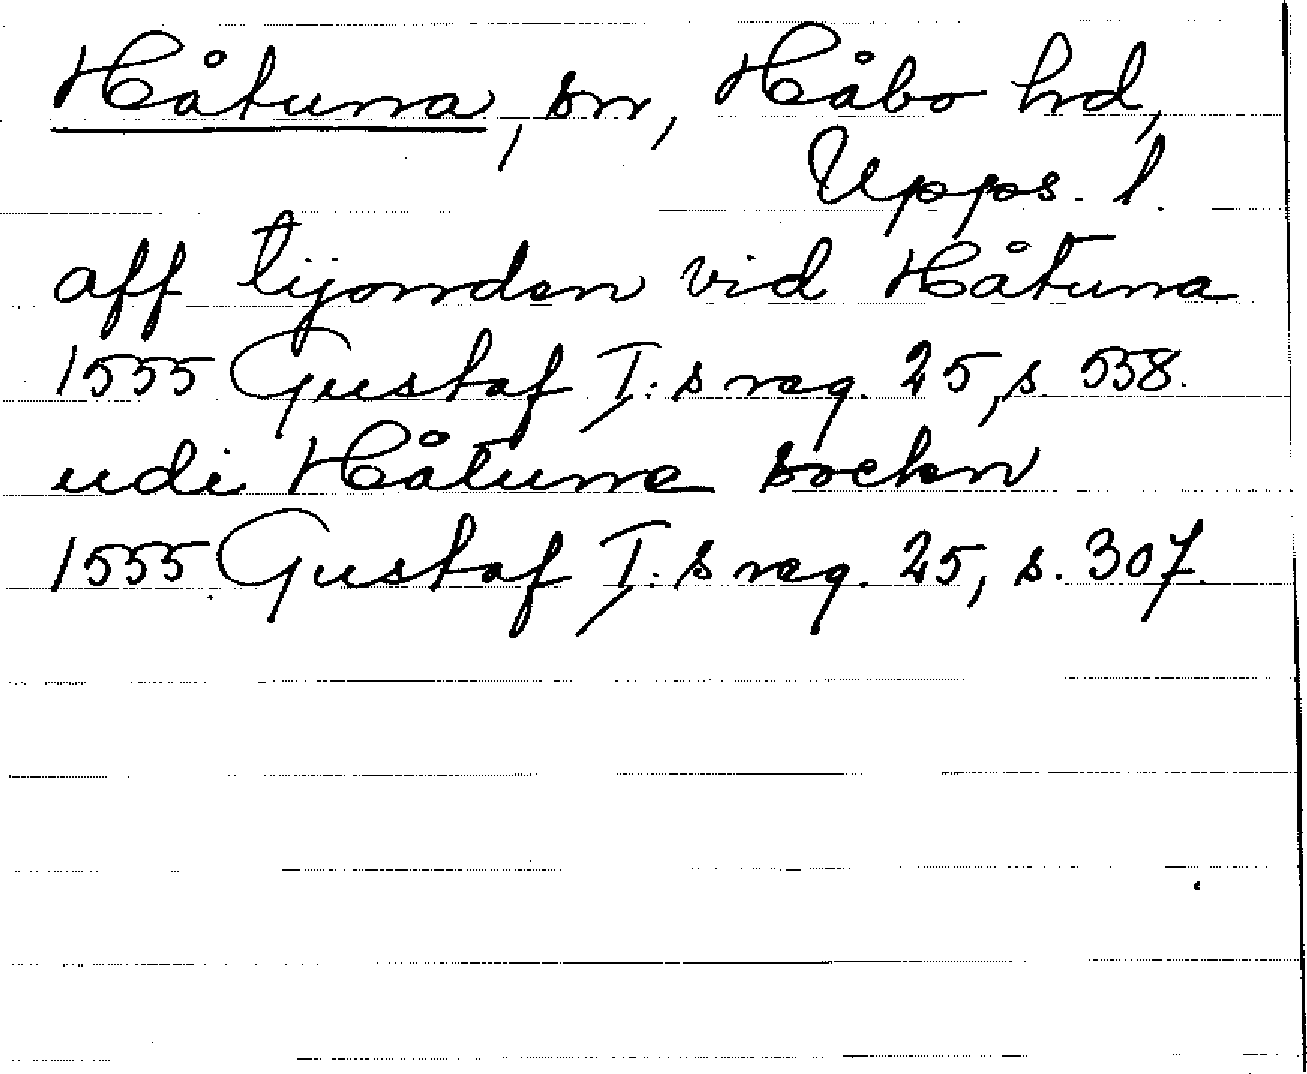 Håtuna, sn, Håbo hd,
Upps. l.
aff tijonden vid Håtuna
1555 Gustaf I:s reg. 25, s. 558.
udi Håtune sockn
1555 Gustaf I:s reg. 25, s. 307.